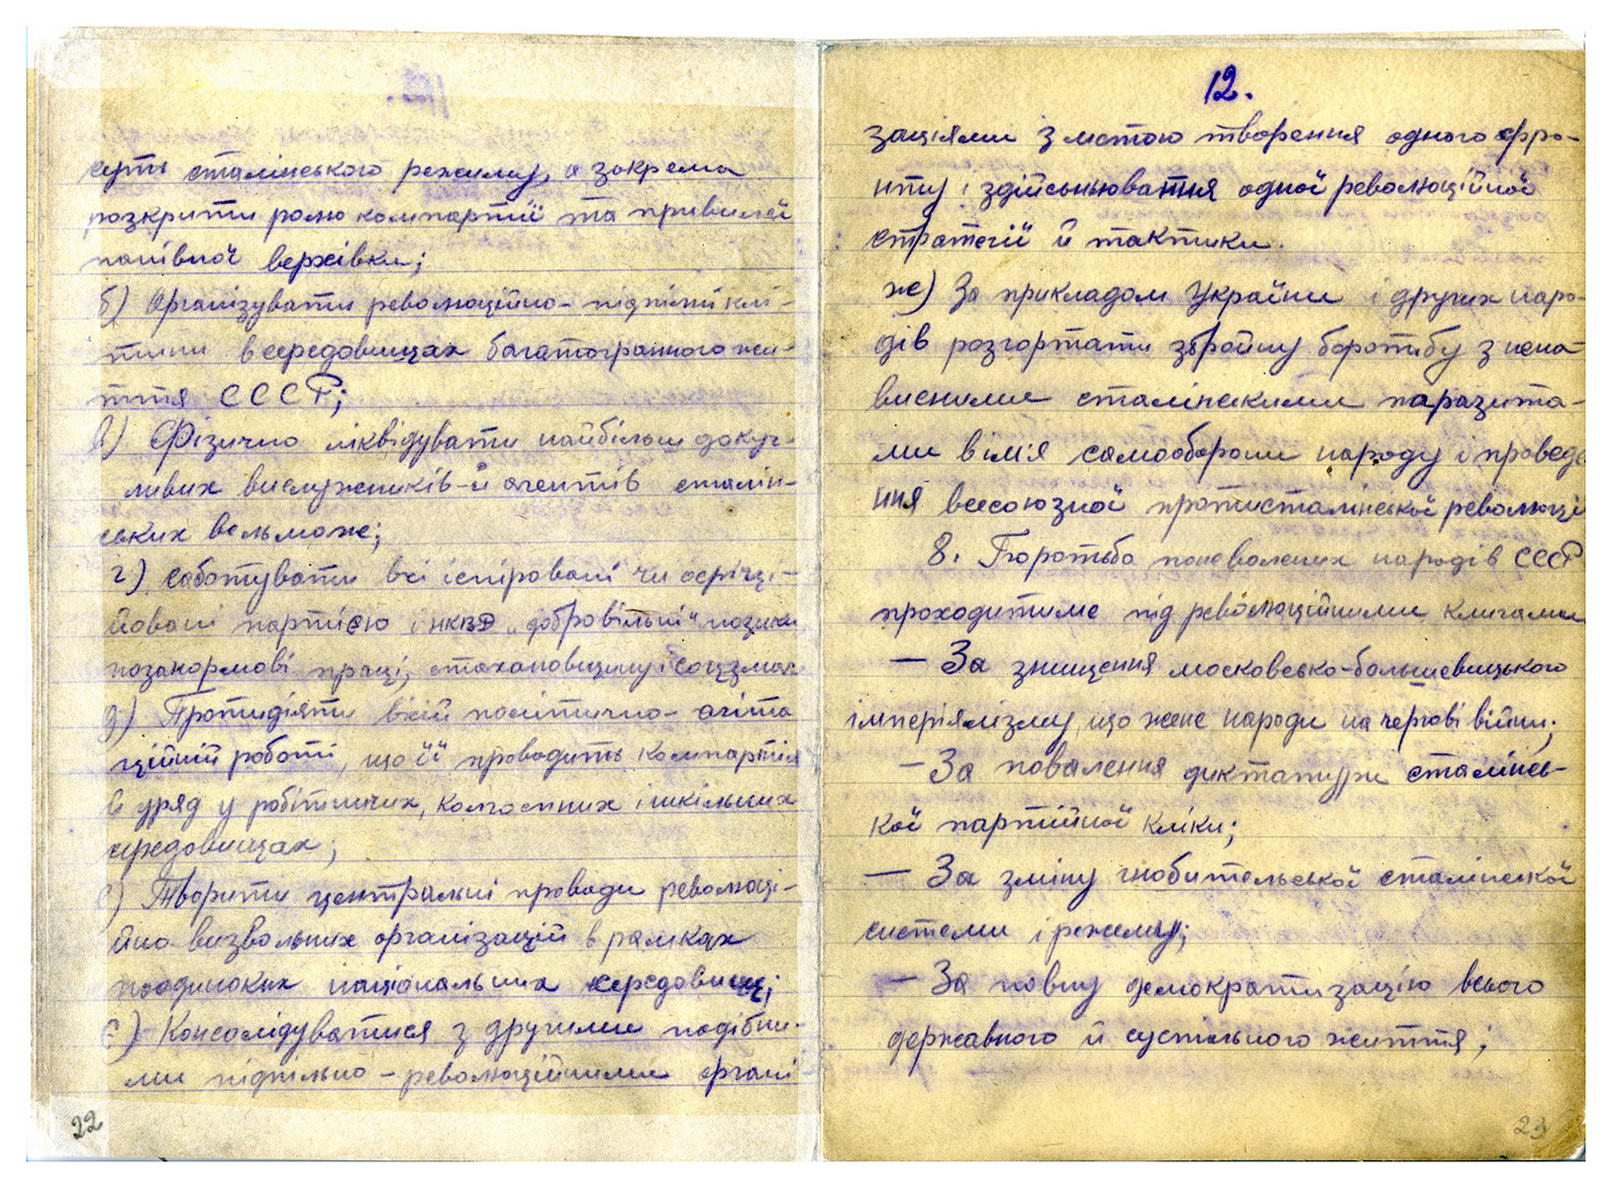 суть сталінського режиму, а зокрема
розкрити ролю компартії та привилеї
панівної верхівки;
б) Організувати революційно-підпілні клі-
тини в середовищах багатогранного жи-
ття СССР;
в) Фізично ліквідувати найбільш докуч-
ливих вислужників й агентів сталін-
ських вельмож;
г) саботувати всі інспіровані чи
йовані партією і НКВД „добровільні" позики
позанормові праці, стахановщину і соцзмаг
д) Протидіяти всій політично-агіта
ційній роботі, що її проводить компартія
в уряд у робітничих, колгоспних і шкільних
середовищах;
е) Творити центральні проводи революці-
йно визвольних організацій в рамках
поодиноких національних середовищ;
є) Консолідуватися з другими подібни-
ми підпільно-революційними органі
22
12.
заціями з метою творення одного фро-
нту і здійснювання одної революційної
стратегії й тактики.
ж) За прикладом України і других наро-
дів розгортати збройну боротьбу з нена-
висними сталінскими паразита-
ми в імя самооборони народу і провед
ння всесоюзної протисталінської революці
8. Боротьба поневолених народів СССР
проходитиме під революційними кличами
— За знищення московсько-большевицького
імперіялізму, що жене народи на чергові війни;
— За повалення диктатури сталінсь-
кої партійної кліки;
— За зміну гнобительської сталінскої
системи і режиму;
— За повну демократизацію всього
державного й суспільного життя;
23